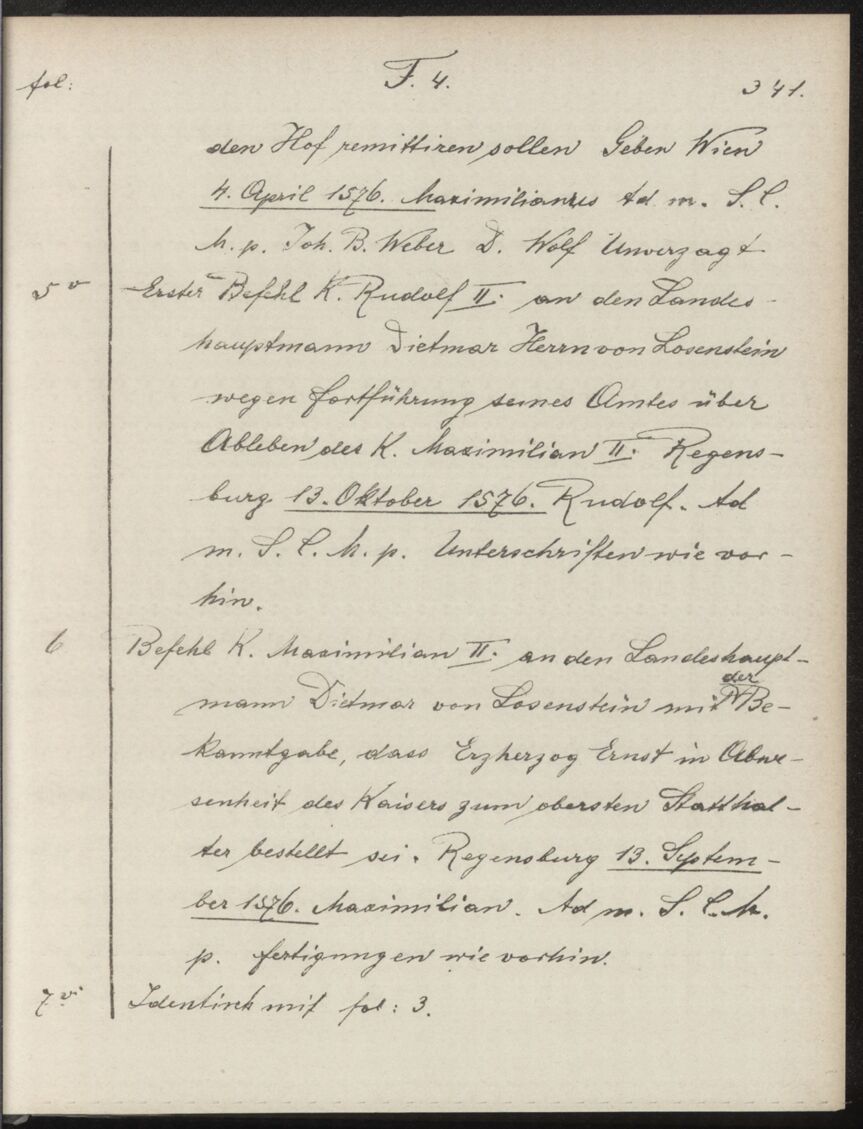 fol: F. 4. 341.
den Hof remittiren sollen Geben Wien
4. April 1576. Maximilianus Ad m. S. C.
M. p. Joh. B. Weber D. Wolf Unverzagt
5 v Erster Befehl K. Rudolf II. an den Landes-
hauptmann Dietmar Herrn von Losenstein
wegen Fortführung seines Amtes über
Ableben des K. Maximilian II. Regens-
burg 13. Oktober 1576. Rudolf. Ad
m. S. C. M. p. Unterschriften wie vor-
hin.
6 Befehl K. Maximilian II. an den Landeshaupt-
mann Dietmar von Losenstein mit der Be-
kanntgabe, dass Erzherzog Ernst in Abwe-
senheit des Kaisers zum obersten Statthal-
ter bestellt sei. Regensburg 13. Septem-
ber 1576. Maximilian. Ad m. S. C. M.
p. fertigungen wie vorhin.
7 v. Identisch mit fol: 3.